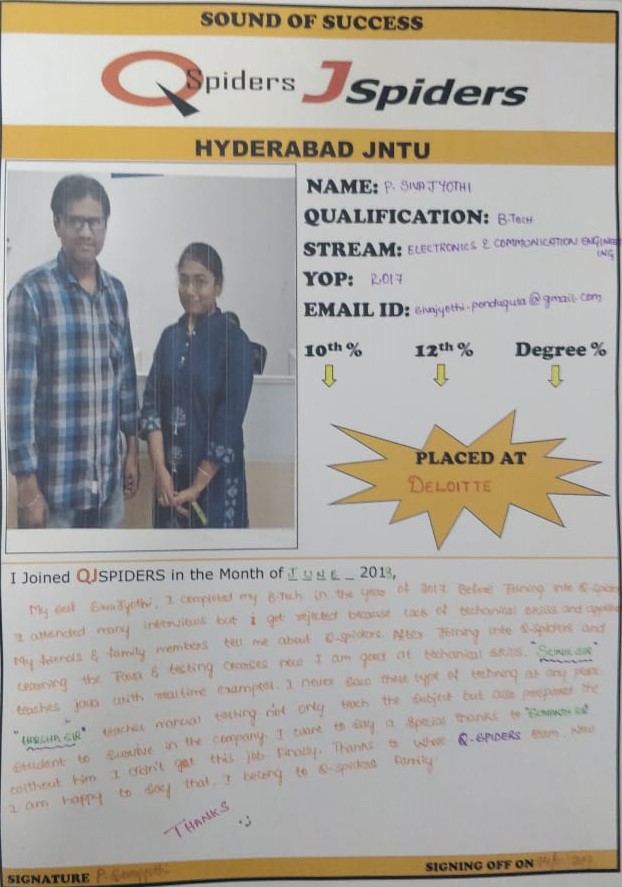 SOUND OF SUCCESS
QSpiders JSpiders
HYDERABAD JNTU
NAME: P. SIVAJYOTHI
QUALIFICATION: B-Tech
STREAM: ELECTRONICS & COMMUNICATION ENGINEERING
YOP: 2017
EMAIL ID: sivajyothi.penduguta@gmail.com
10th % 12th % Degree %
PLACED AT
DELOITTE
I Joined QJSPIDERS in the Month of JUNE _ 2018,
My self SivaJyothi, I completed my B.Tech in the year of 2017. Before Joining into Q-spiders
I attended many interviews but i get rejected because lack of technical skills and
My friends & family members tell me about Q-spiders. After Joining into Q-spiders and
Learning the Java & testing courses now I am good at techanical skills. "SUNIL SIR"
teaches java with realtime examples. I never saw these type of teching at any place.
"HARSHA SIR" teaches manual testing not only teach the subject but also prepares the
student to survive in the company. I want to say a special thanks to "SUMANTH SIR"
without him I didn't get this job. Finally, Thanks to whole Q-SPIDERS team. Now
I am happy to say that, I belong to Q-spiders family
THANKS :)
SIGNATURE P. Sivajyothi
SIGNING OFF ON